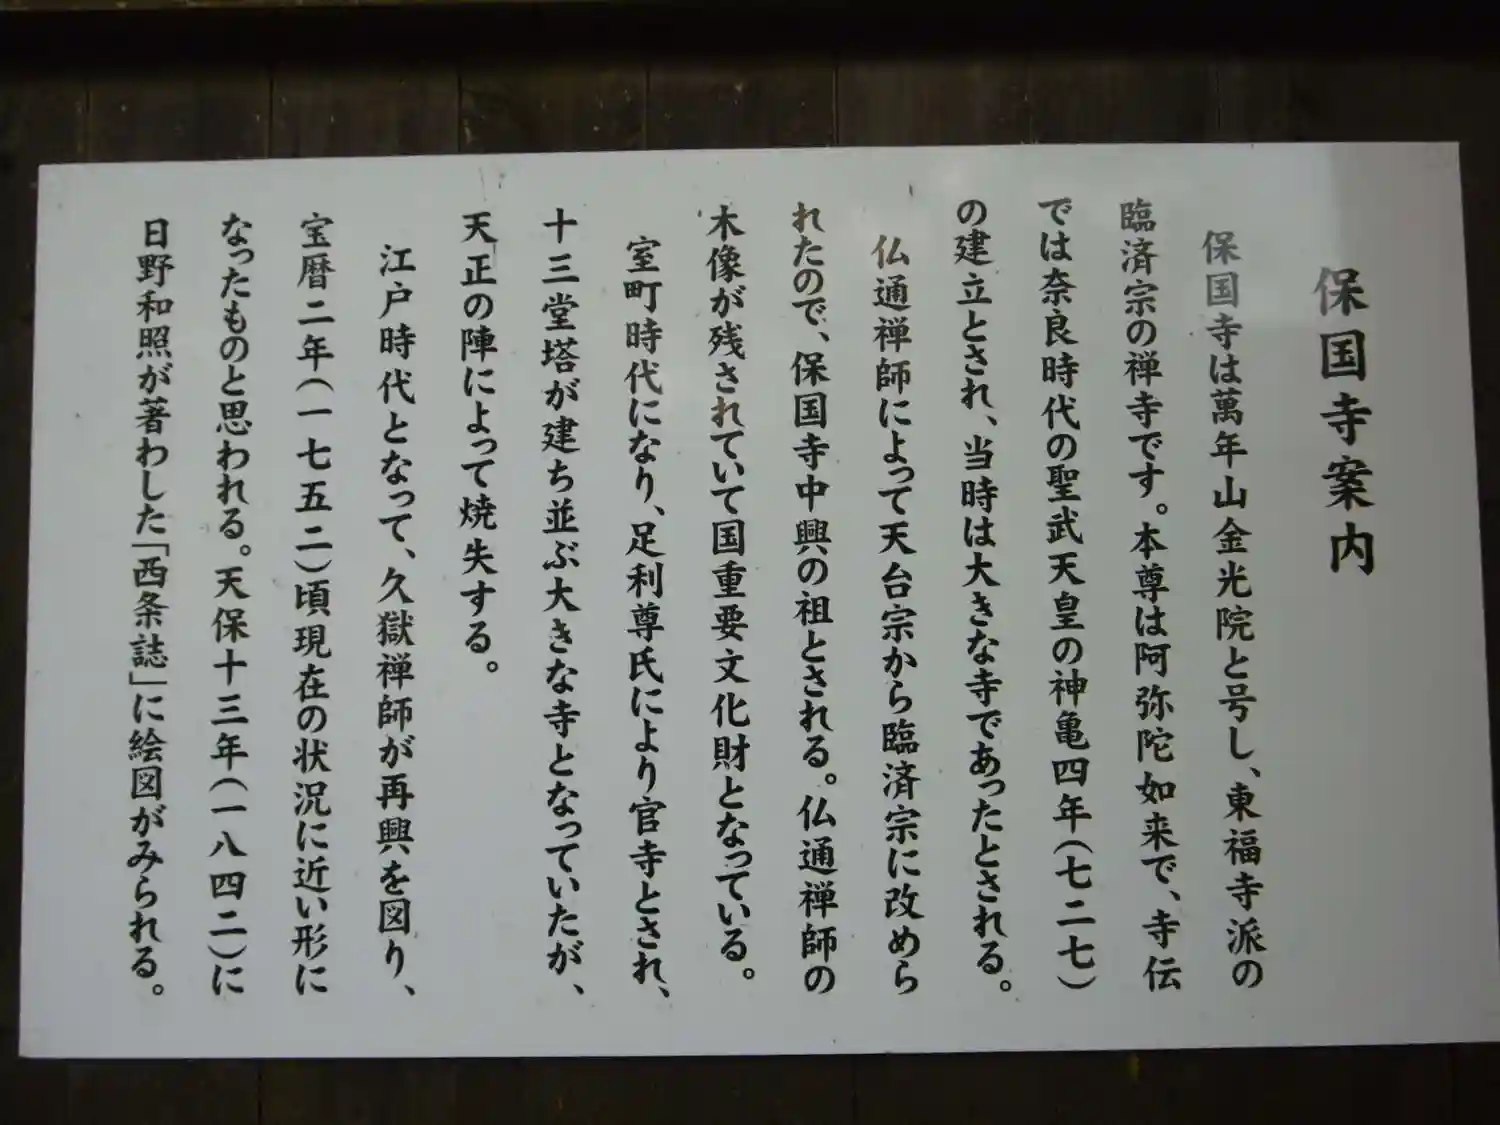 保国寺案内
保国寺は萬年山金光院と号し、東福寺派の
臨済宗の禅寺です。本尊は阿弥陀如来で、寺伝
では奈良時代の聖武天皇の神亀四年(七二七)
の建立とされ、当時は大きな寺であったとされる。
仏通禅師によって天台宗から臨済宗に改めら
れたので、保国寺中興の祖とされる。仏通禅師の
木像が残されていて国重要文化財となっている。
室町時代になり、足利尊氏により官寺とされ、
十三堂塔が建ち並ぶ大きな寺となっていたが、
天正の陣によって焼失する。
江戸時代となって、久獄禅師が再興を図り、
宝暦二年(一七五二)頃現在の状況に近い形に
なったものと思われる。天保十三年(一八四二)に
日野和照が著わした「西条誌」に絵図がみられる。